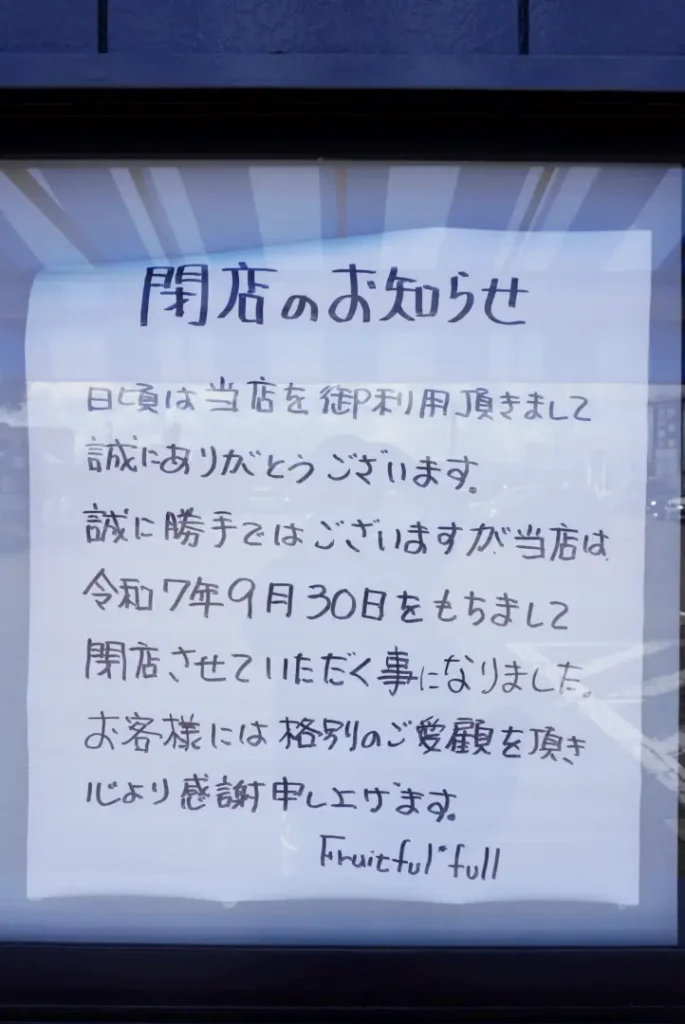 閉店のお知らせ
日頃は当店を御利用頂きまして
誠にありがとうございます。
誠に勝手ではございますが当店は
令和7年9月30日をもちまして
閉店させていただく事になりました。
お客様には格別のご愛顧を頂き
心より感謝申し上げます。
Fruitful*full